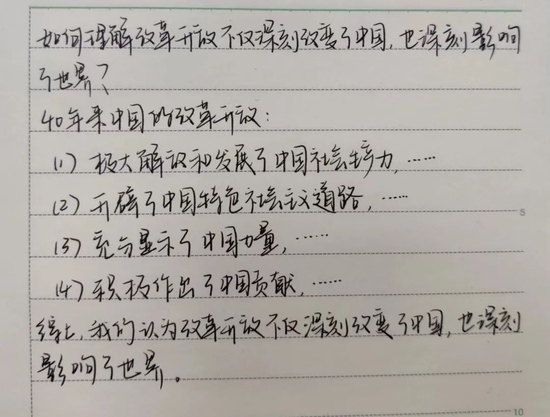 如何理解改革开放不仅深刻改变了中国,也深刻影响
了世界?
40年来中国的改革开放:
(1)极大解放和发展了中国社会生产力,……
(2)开辟了中国特色社会主义道路,……
(3)充分显示了中国力量,……
(4)积极作出了中国贡献,……
综上,我们认为改革开放不仅深刻改变了中国,也深刻
影响了世界。
5
10